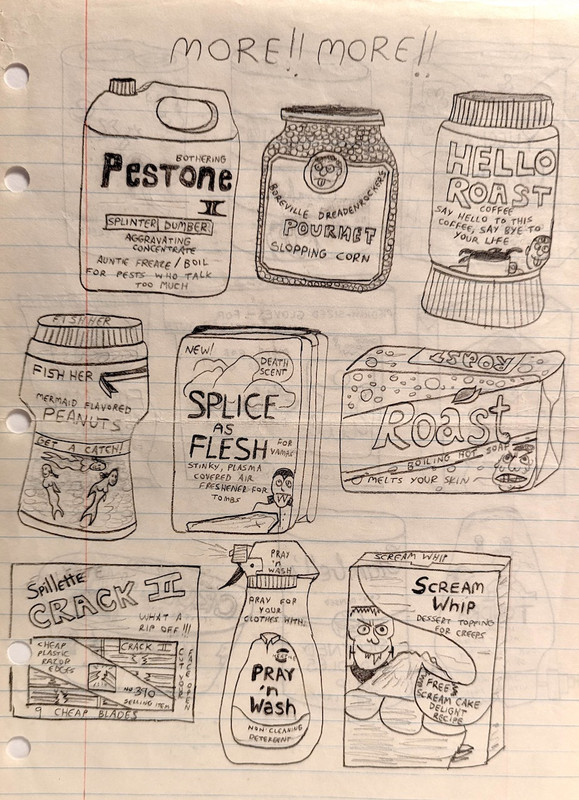 MORE!! MORE!!
BOTHERING
PESTONE
II
SPLINTER DUMBER
AGGRAVATING
CONCENTRATE
AUNTIE FREARE / BOIL
FOR PESTS WHO TALK
TOO MUCH
BOREVILLE DREADENROCKERS
POURMET
SLOPPING CORN
HELLO
ROAST
COFFEE
SAY HELLO TO THIS
COFFEE, SAY BYE TO
YOUR LIFE
FISH HER
FISH HER
MERMAID FLAVORED
PEANUTS
GET A CATCH!
NEW!
DEATH
SCENT
SPLICE
AS
FLESH
FOR
STINKY, PLASMA
COVERED AIR
FRESHENER FOR
TOMBS
ROAST
Roast
BOILING HOT SOAP
MELTS YOUR SKIN
Spillette
CRACK II
WHAT A
RIP OFF!!!
CHEAP
PLASTIC
RAZOR
EDGES
CRACK II
CUT YOUR
FACE OPEN
SELLING ITEM
9 CHEAP BLADES
PRAY
'n
WASH
PRAY FOR
YOUR
CLOTHES WITH:
PRAY
'n
Wash
NON-CLEANING
DETERGENT
SCREAM WHIP
SCREAM
WHIP
DESSERT TOPPING
FOR CREEPS
FREE'S
SCREAM CAKE
DELIGHT
RECIPE